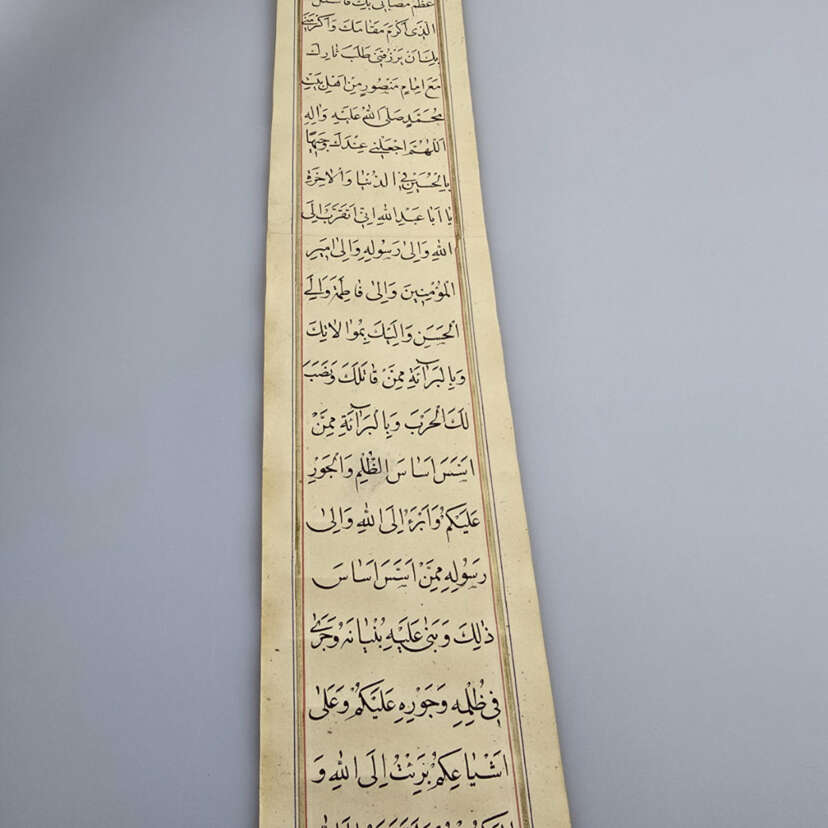 عَظُمَ مُصَابِي بِكَ فَاَسْئَلُ
الَّذِي اَكْرَمَ مَقَامَكَ وَاَكْرَمَنِي
بِكَ اَنْ يَرْزُقَنِي طَلَبَ ثَارِكَ
مَعَ اِمَامٍ مَنْصُورٍ مِنْ اَهْلِ بَيْتِ
مُحَمَّدٍ صَلَّى اللهُ عَلَيْهِ وَالِهِ
اَللّٰهُمَّ اجْعَلْنِي عِنْدَكَ وَجِيهًا
بِالْحُسَيْنِ فِي الدُّنْيَا وَالْاٰخِرَةِ
يَا اَبَا عَبْدِ اللهِ اِنِّي اَتَقَرَّبُ اِلَى
اللهِ وَاِلٰى رَسُولِهِ وَاِلٰى اَمِيرِ
الْمُؤْمِنِينَ وَاِلٰى فَاطِمَةَ وَاِلَى
الْحَسَنِ وَاِلَيْكَ بِمُوَالَاتِكَ
وَبِالْبَرَآئَةِ مِمَّنْ قَاتَلَكَ وَنَصَبَ
لَكَ الْحَرْبَ وَبِالْبَرَآئَةِ مِمَّنْ
اَسَّسَ اَسَاسَ الظُّلْمِ وَالْجَوْرِ
عَلَيْكُمْ وَاَبْرَءُ اِلَى اللهِ وَاِلٰى
رَسُولِهِ مِمَّنْ اَسَّسَ اَسَاسَ
ذٰلِكَ وَبَنٰى عَلَيْهِ بُنْيَانَهُ وَجَرٰى
فِي ظُلْمِهِ وَجَوْرِهِ عَلَيْكُمْ وَعَلٰى
اَشْيَاعِكُمْ بَرِئْتُ اِلَى اللهِ وَ